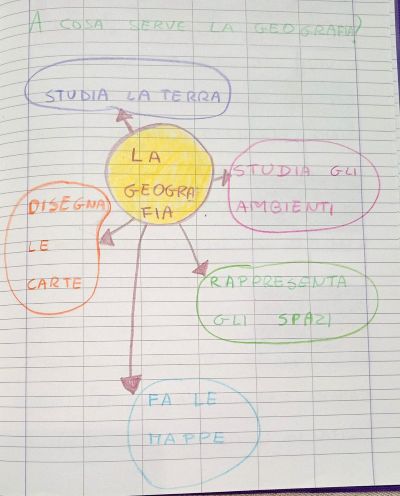 A COSA SERVE LA GEOGRAFIA?
STUDIA LA TERRA
LA
GEOGRA
FIA
STUDIA GLI
AMBIENTI
DISEGNA
LE
CARTE
RAPPRESENTA
GLI SPAZI
FA LE
MAPPE